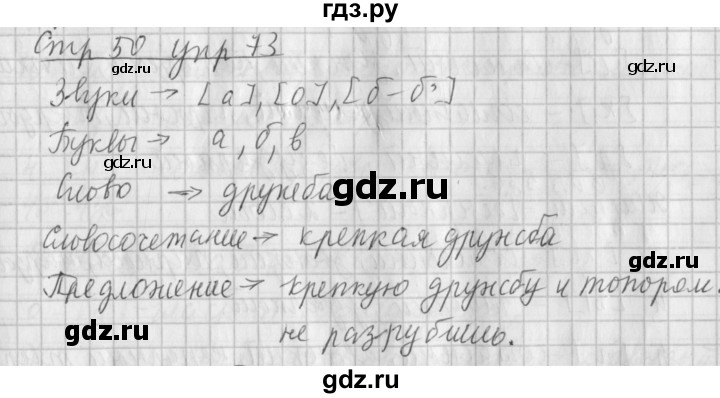 гдз.ру
Стр 50 упр 73
gdz.ru gdz.ru
Звуки → [а], [о], [б-б']
Буквы → а, б, в
gdz.ru gdz.ru
Слово → дружба
gdz.ru
Словосочетание → крепкая дружба
gdz.ru gdz.ru
Предложение → крепкую дружбу и топором
не разрубишь.
gdz.ru gdz.ru
gdz.ru